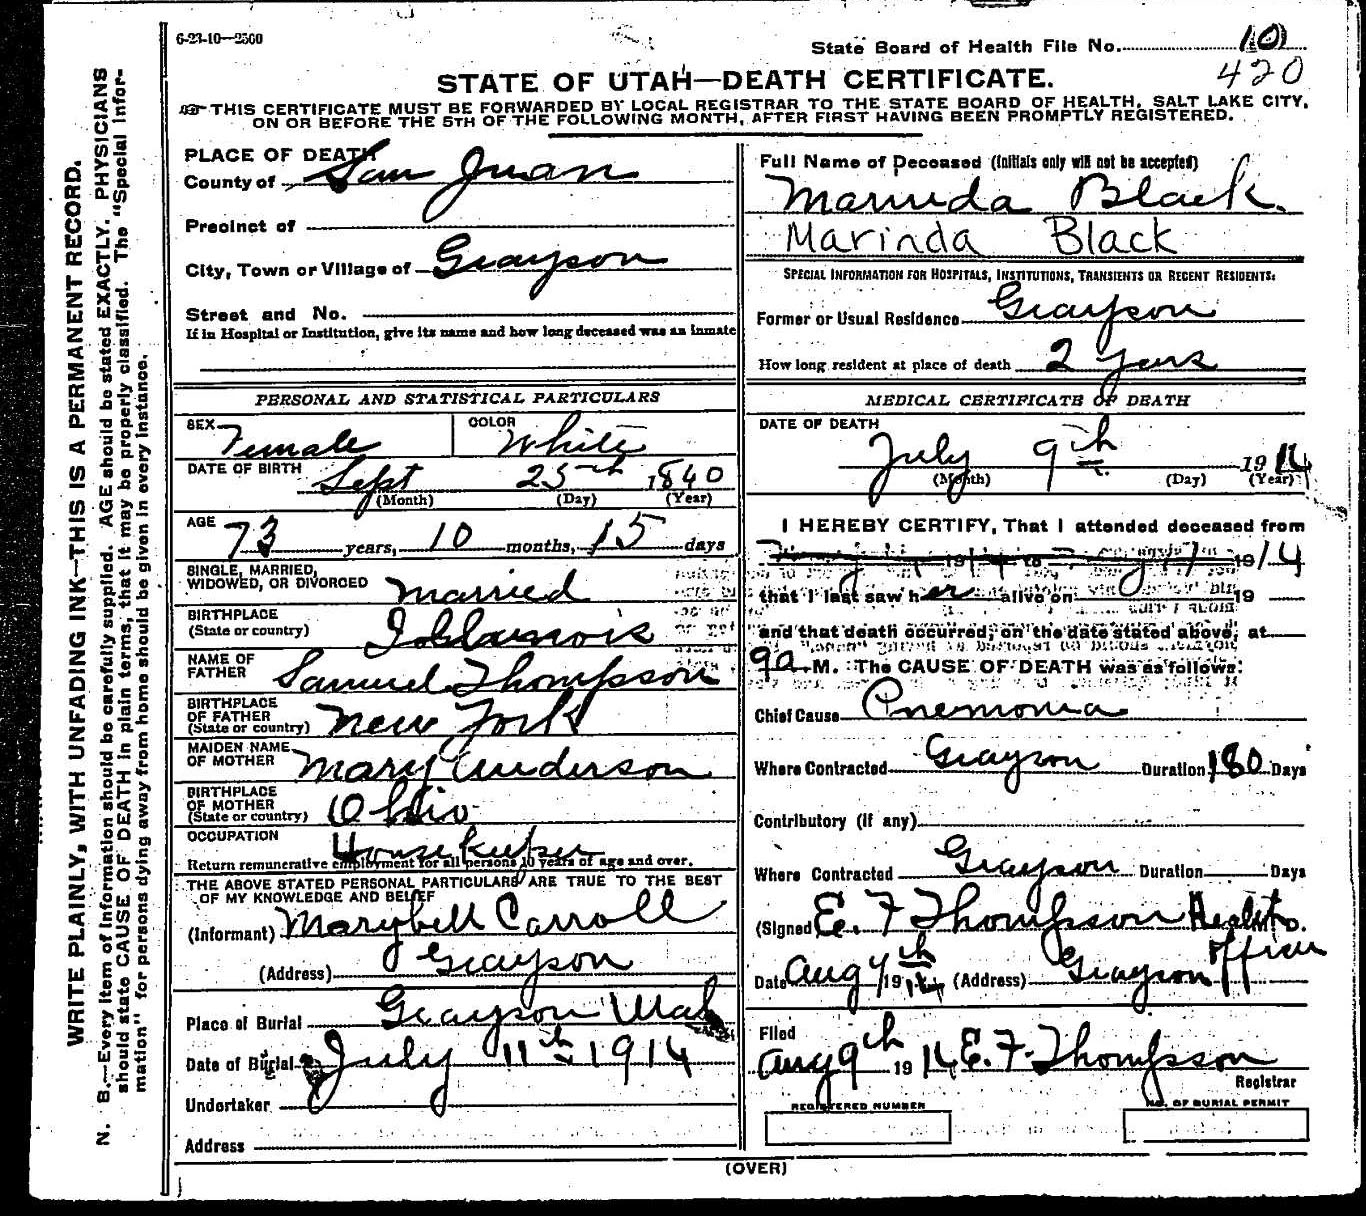 6-23-10—2500
State Board of Health File No. 10
420
STATE OF UTAH—DEATH CERTIFICATE.
THIS CERTIFICATE MUST BE FORWARDED BY LOCAL REGISTRAR TO THE STATE BOARD OF HEALTH, SALT LAKE CITY,
ON OR BEFORE THE 5TH OF THE FOLLOWING MONTH, AFTER FIRST HAVING BEEN PROMPTLY REGISTERED.
WRITE PLAINLY, WITH UNFADING INK—THIS IS A PERMANENT RECORD.
N. B.—Every item of information should be carefully supplied. AGE should be stated EXACTLY. PHYSICIANS
should state CAUSE OF DEATH in plain terms, that it may be properly classified. The "Special Infor-
mation" for persons dying away from home should be given in every instance.
PLACE OF DEATH
County of San Juan
Precinct of
City, Town or Village of Grayson
Street and No.
If in Hospital or Institution, give its name and how long deceased was an inmate
PERSONAL AND STATISTICAL PARTICULARS
SEX Female COLOR White
DATE OF BIRTH Sept 25th 1840
(Month) (Day) (Year)
AGE 73 years, 10 months, 15 days
SINGLE, MARRIED,
WIDOWED, OR DIVORCED Married
BIRTHPLACE
(State or country)
NAME OF
FATHER Samuel Thompson
BIRTHPLACE
OF FATHER
(State or country) New York
MAIDEN NAME
OF MOTHER Mary Anderson
BIRTHPLACE
OF MOTHER
(State or country) Ohio
OCCUPATION House Keeper
Return remunerative employment for all persons 10 years of age and over.
THE ABOVE STATED PERSONAL PARTICULARS ARE TRUE TO THE BEST
OF MY KNOWLEDGE AND BELIEF
(Informant) Marybell Carroll
(Address) Grayson
Place of Burial Grayson Utah
Date of Burial July 11th 1914
Undertaker
Address
Full Name of Deceased (Initials only will not be accepted)
Marinda Black.
Marinda Black
SPECIAL INFORMATION FOR HOSPITALS, INSTITUTIONS, TRANSIENTS OR RECENT RESIDENTS:
Former or Usual Residence Grayson
How long resident at place of death 2 years
MEDICAL CERTIFICATE OF DEATH
DATE OF DEATH
July 9th 1914
(Month) (Day) (Year)
I HEREBY CERTIFY, That I attended deceased from
19 14 to 19 14
that I last saw her alive on 19
and that death occurred, on the date stated above, at
9 a. M. The CAUSE OF DEATH was as follows:
Chief Cause Pnemonia
Where Contracted Grayson Duration 180 Days
Contributory (if any)
Where Contracted Grayson Duration Days
(Signed) E. F Thompson Health M.D.
Officer
Date Aug 9th 1914 (Address) Grayson
Filed
Aug 9th 1914 E. F. Thompson
Registrar
REGISTERED NUMBER
NO. OF BURIAL PERMIT
(OVER)